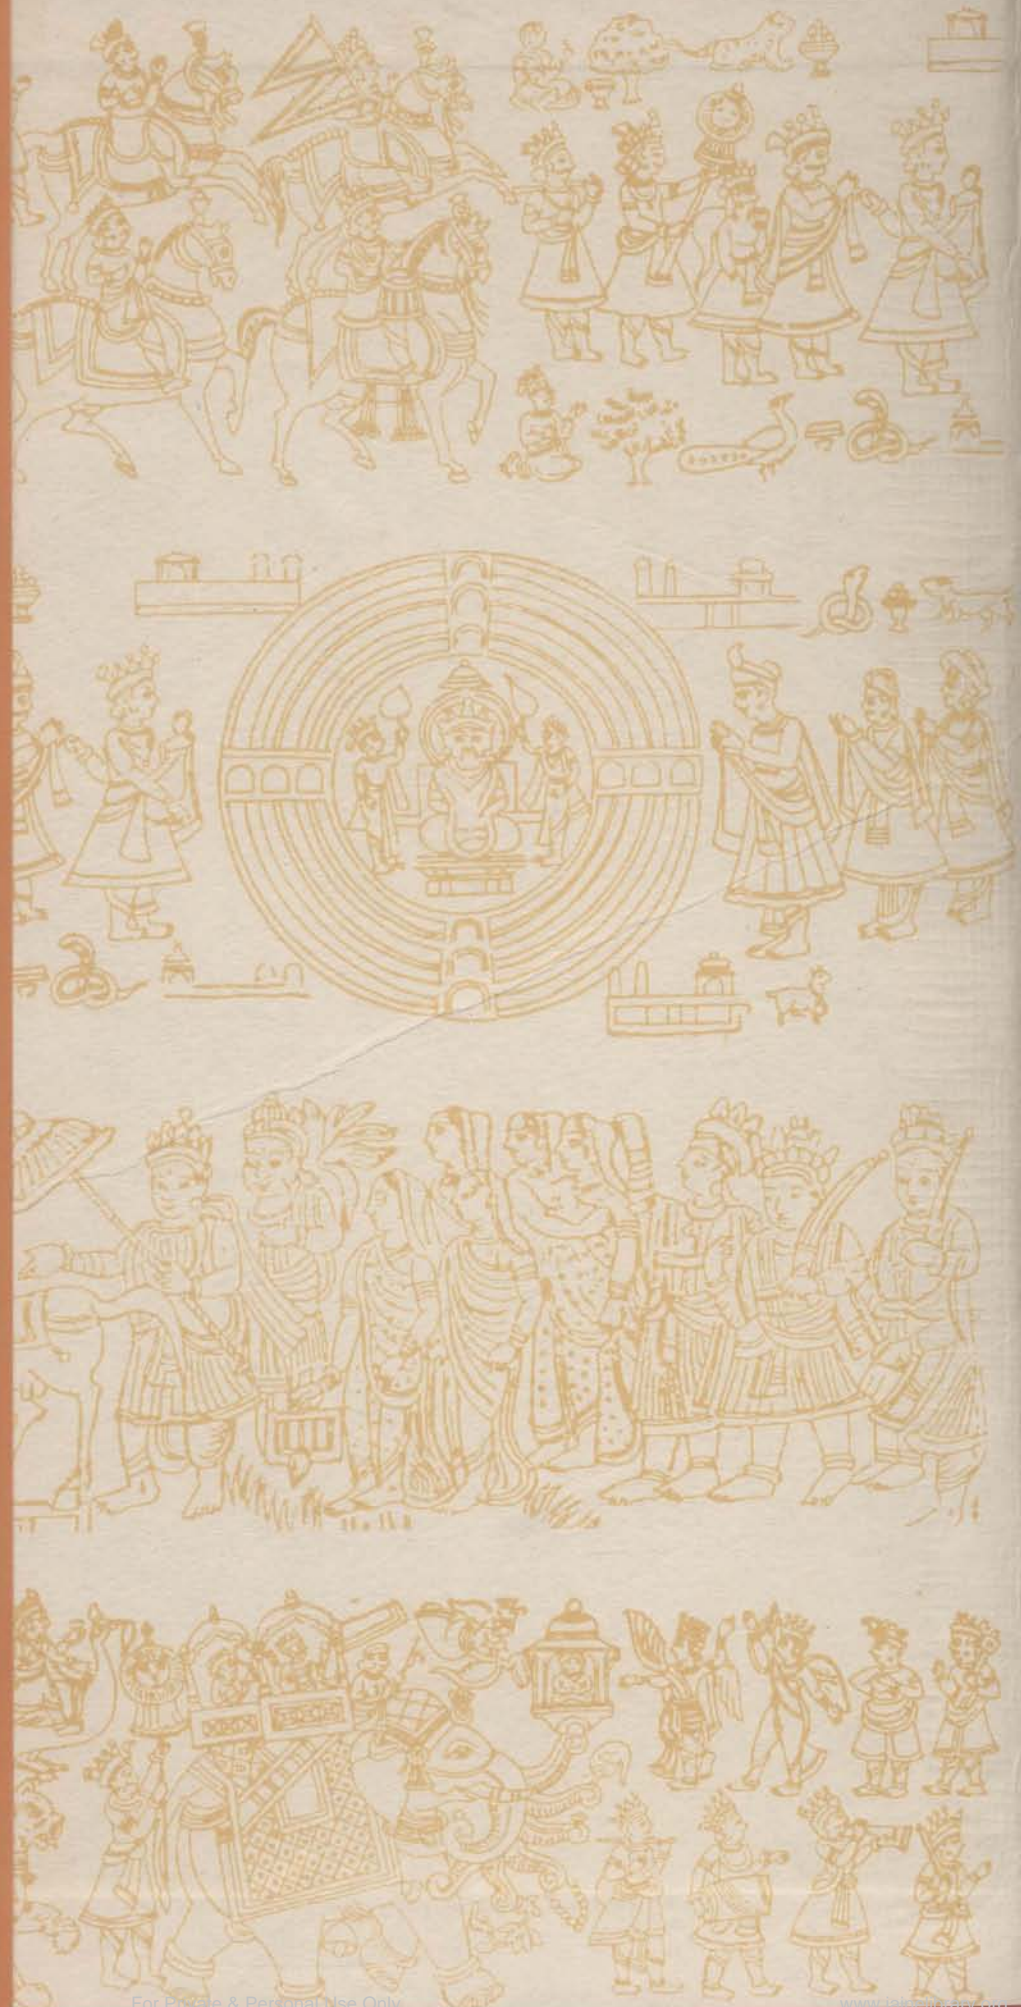 For Private & Personal Use Only